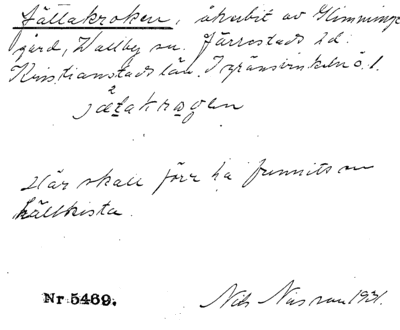 Fällakroken, åkerbit av Glimminge
gård, Wallby sn. Järrestads hd.
Kristianstads län. I gränsvinkeln ö. l.
Här skall förr ha funnits en
källkista.
Nr 5469. Nils Nilsson 1931.